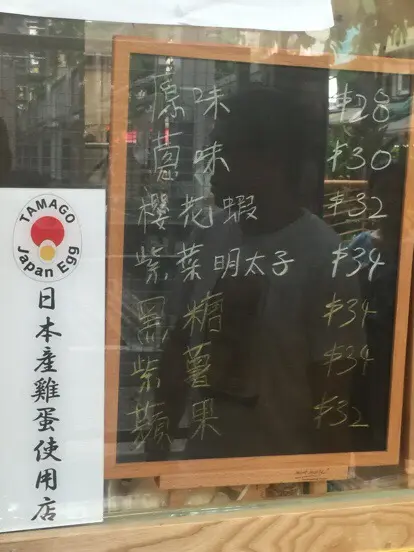 原味 $28
蔥味 $30
櫻花蝦 $32
紫菜明太子 $34
黑糖 $34
紫薯 $34
蘋果 $32
TAMAGO
Japan Egg
日本產雞蛋使用店